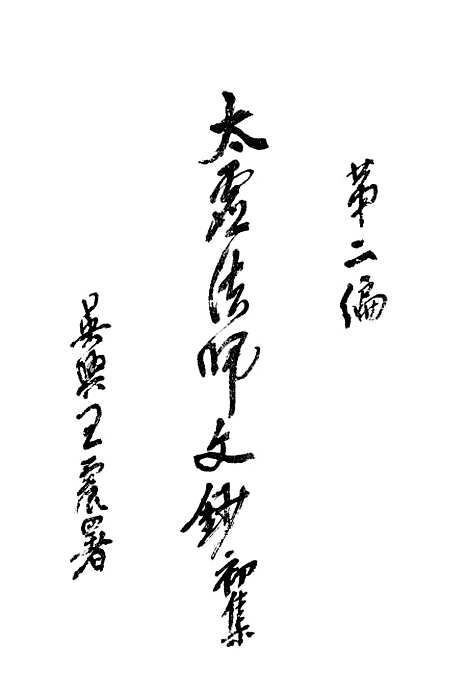 第二偏
太虛法师文鈔初集
吳興王震署